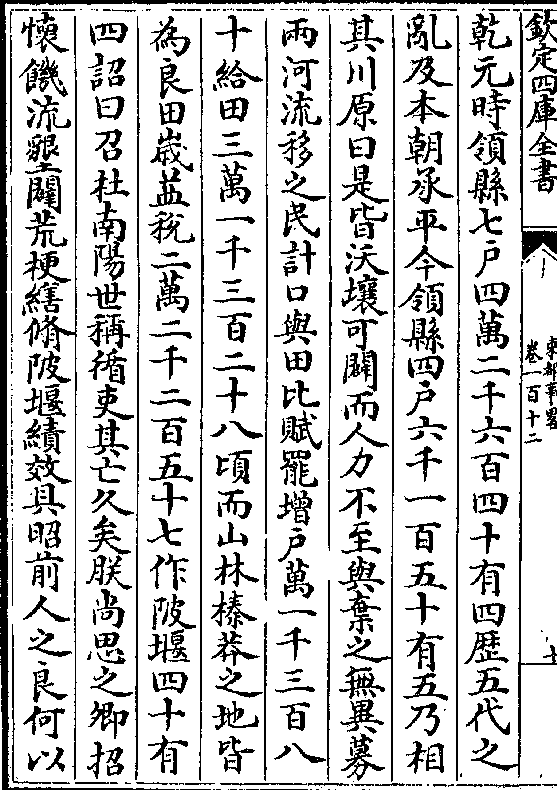 欽定四庫全書
東都事略
卷一百十二
乾元時領縣七戸四萬二千六百四十有四歴五代之
亂及本朝承平今領縣四戸六千一百五十有五乃相
其川原曰是皆沃壤可闢而人力不至與棄之無異募
兩河流移之民計口與田比賦罷增戸萬一千三百八
十給田三萬一千三百二十八頃而山林榛莽之地皆
為良田歳益稅二萬二千二百五十七作陂堰四十有
四詔曰召杜南陽世稱循吏其亡久矣朕尚思之卿招
懷饑流墾闢荒梗繕脩陂堰績效具昭前人之良何以